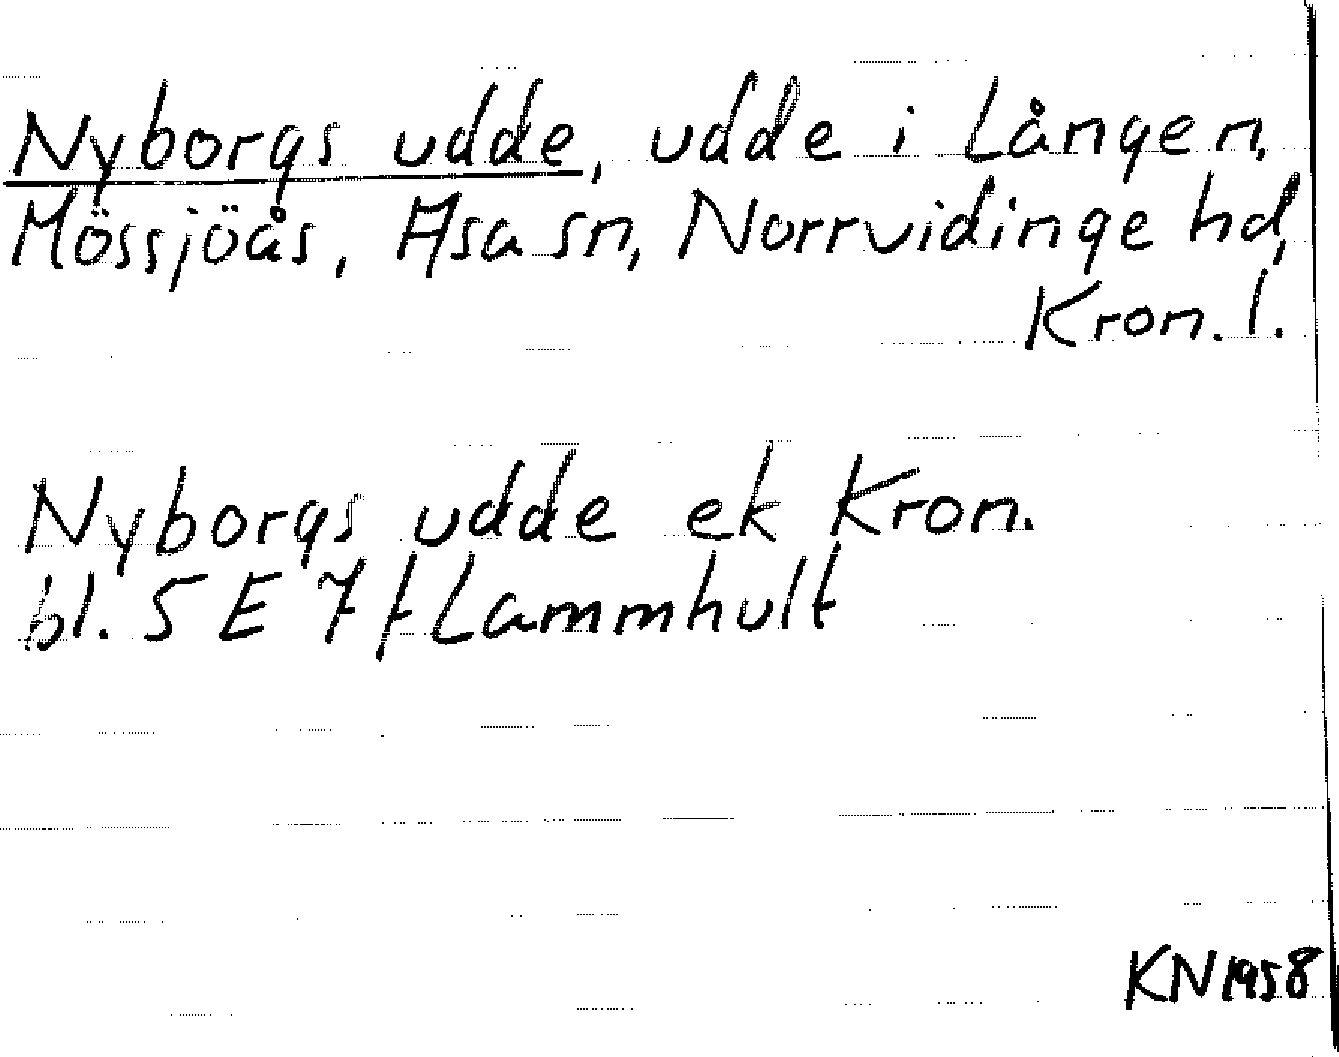 Nyborgs udde, udde i Lången,
Mössjöås, Asa sn, Norrvidinge hd,
Kron. l.
Nyborgs udde ek Kron.
bl. 5 E 7 f Lammhult
KN 1958